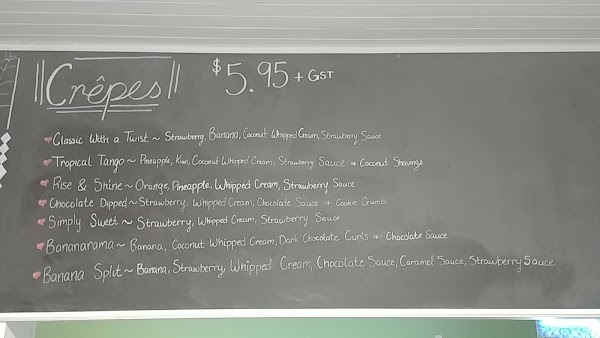 Crêpes $5.95 + GST
Classic With a Twist ~ Strawberry, Banana, Coconut Whipped Cream, Strawberry Sauce
Tropical Tango ~ Pineapple, Kiwi, Coconut Whipped Cream, Strawberry Sauce & Coconut Shavings
Rise & Shine ~ Orange, Pineapple, Whipped Cream, Strawberry Sauce
Chocolate Dipped ~ Strawberry, Whipped Cream, Chocolate Sauce & Cookie Crumb
Simply Sweet ~ Strawberry, Whipped Cream, Strawberry Sauce
Bananarama ~ Banana, Coconut Whipped Cream, Dark Chocolate Curls & Chocolate Sauce
Banana Split ~ Banana, Strawberry, Whipped Cream, Chocolate Sauce, Caramel Sauce, Strawberry Sauce